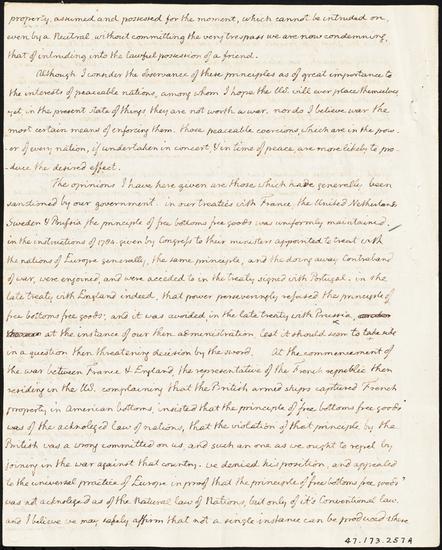 property, assumed and possessed for the moment, which cannot be intruded on,
even by a Neutral without committing the very trespass we are now condemning,
that of intruding into the lawful possession of a friend.
Although I consider the observance of these principles as of great importance to
the interests of peaceable nations, among whom I hope the U.S. will ever place themselves
yet in the present state of things they are not worth a war. nor do I believe war the
most certain means of enforcing them. those peaceable coercions which are in the pow-
-er of every nation, if undertaken in concert, & in time of peace, are more likely to pro-
-duce the desired effect.
The opinions I have here given are those which have generally been
sanctioned by our government. in our treaties with France the United Netherlands
Sweden & Prussia, the principle of free bottoms free goods was uniformly maintained.
in the instructions of 1784. given by Congress to their ministers appointed to treat with
the nations of Europe generally, the same principle, and the doing away Contraband
of war, were enjoined, and were acceded to in the treaty signed with Portugal. in the
late treaty with England indeed, that power perseveringly refused the principle of
free bottoms free goods; and it was avoided, in the late treaty with Prussia,
at the instance of our then administration lest it should seem to take side
in a question then threatening decision by the sword. At the commencement of
the war between France & England, the representative of the French republic then
residing in the U.S. complaining that the British armed ships captured French
property in American bottoms, insisted that the principle of 'free bottoms free goods'
was of the acknoleged law of nations, that the violation of that principle by the
British was a wrong committed on us, and such an one as we ought to repel by
joining in the war against that country. we denied his position, and appealed
to the universal practice of Europe in proof that the principle of 'free bottoms free goods'
was not acknoleged as of the Natural law of Nations, but only of it's Conventional law.
and I believe we may safely affirm that not a single instance can be produced where
47.173.257A